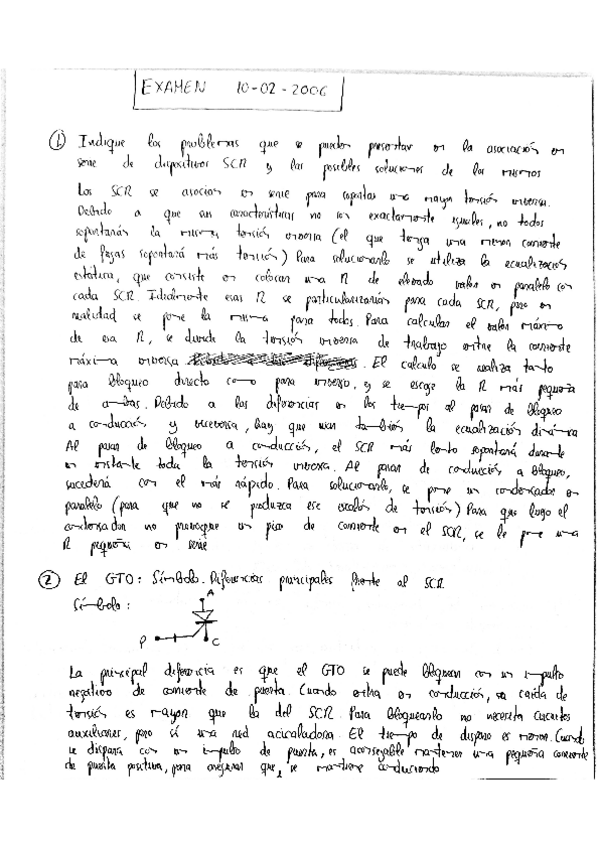 EXAMEN 10-02-2006
① Indique los problemas que se pueden presentar en la asociación en
serie de dispositivos SCR y las posibles soluciones de los mismos
Los SCR se asocian en serie para soportar una mayor tensión inversa.
Debido a que sus características no son exactamente iguales, no todos
soportarán la misma tensión inversa (el que tenga una menor corriente
de fugas soportará más tensión) Para solucionarlo se utiliza la ecualización
estática, que consiste en colocar una R de elevado valor en paralelo con
cada SCR. Idealmente esas R se particularizarían para cada SCR, pero en
realidad se pone la misma para todos. Para calcular el valor máximo
de esa R, se divide la tensión inversa de trabajo entre la corriente
máxima inversa. El calculo se realiza tanto
para bloqueo directo como para inverso, y se escoge la R más pequeña
de ambas. Debido a las diferencias en los tiempos al pasar de bloqueo
a conducción y viceversa, hay que usar también la ecualización dinámica
Al pasar de bloqueo a conducción, el SCR más lento soportará durante
un instante toda la tensión inversa. Al pasar de conducción a bloqueo,
sucederá con el más rápido. Para solucionarlo, se pone un condensador en
paralelo (para que no se produzca ese escalón de tensión) Para que luego el
condensador no provoque un pico de corriente en el SCR, se le pone una
R pequeña en serie
② El GTO: Símbolo. Diferencias principales frente al SCR
Símbolo:
A
P
C
La principal diferencia es que el GTO se puede bloquear con un impulso
negativo de corriente de puerta. Cuando entra en conducción, su caída de
tensión es mayor que la del SCR. Para bloquearlo no necesita circuitos
auxiliares, pero sí una red aciculadora. El tiempo de disparo es menor. Cuando
se dispara con un impulso de puerta, es aconsejable mantener una pequeña corriente
de puerta positiva, para asegurar que se mantiene conduciendo